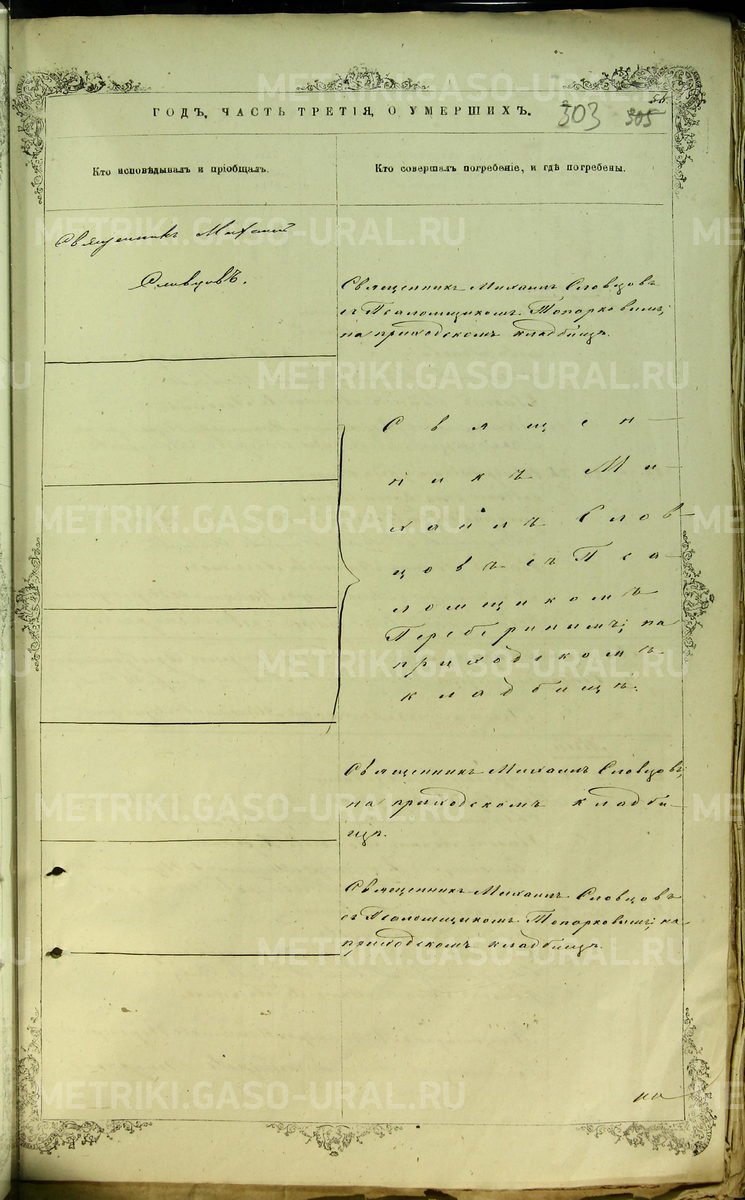 ГОДЪ, ЧАСТЬ ТРЕТІЯ, О УМЕРШИХЪ.
303 305
Кто исповѣдывалъ и пріобщалъ.
Кто совершалъ погребеніе, и гдѣ погребены.
Священникъ Михаилъ
Словцовъ.
Священникъ Михаилъ Словцовъ
съ Псаломщикомъ Топорковымъ;
на приходскомъ кладбищѣ.
Священ-
никъ Ми-
хаилъ Слов-
цовъ съ Пса-
ломщикомъ
Переберинымъ; на
приходскомъ
кладбищѣ.
Священникъ Михаилъ Словцовъ;
на приходскомъ кладби-
щѣ.
Священникъ Михаилъ Словцовъ
съ Псаломщикомъ Топорковымъ; на
приходскомъ кладбищѣ.
METRIKI.GASO-URAL.RU